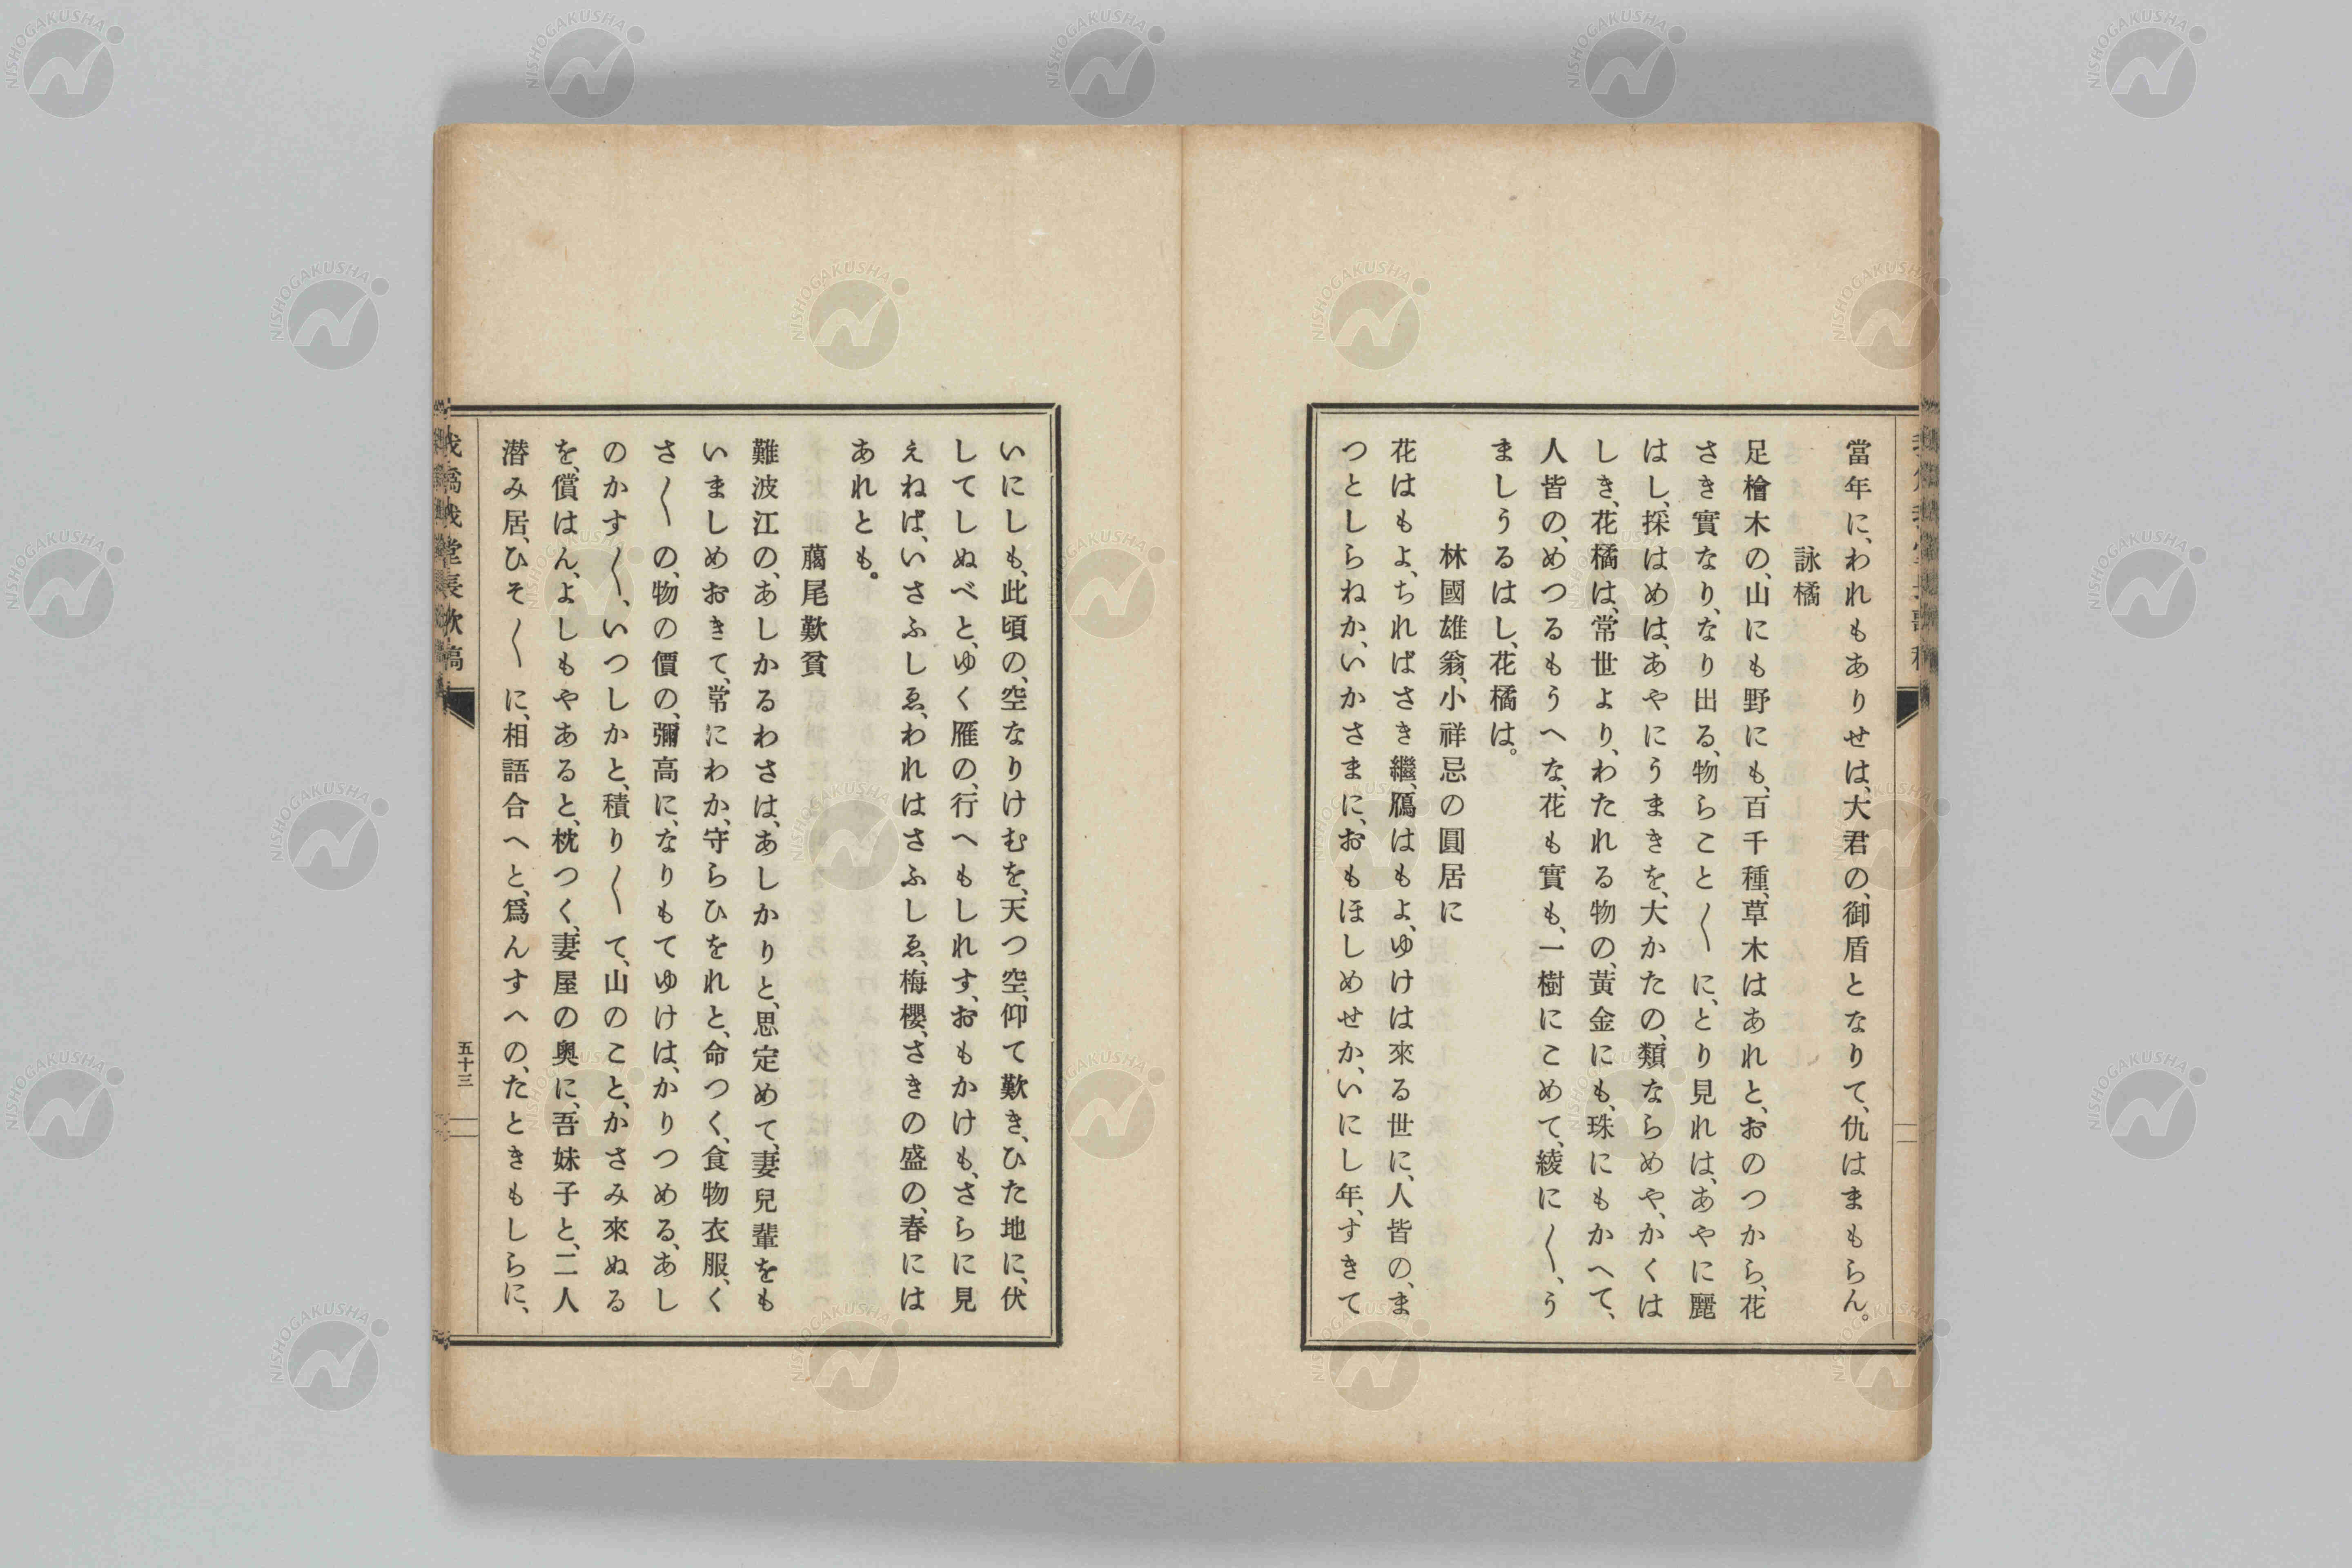 當年に、われもありせは、大君の、御盾となりて、仇はまもらん。
詠橘
足檜木の、山にも野にも、百千種、草木はあれと、おのつから、花
さき實なり、なり出る、物らこと〱に、とり見れは、あやに麗
はし、採はめは、あやにうまきを、大かたの、類ならめや、かくは
しき、花橘は、常世より、わたれる物の、黃金にも、珠にもかへて、
人皆の、めつるもうへな、花も實も、一樹にこめて、綾に〱、う
ましうるはし、花橘は。
林國雄翁、小祥忌の圓居に
花はもよ、ちればさき繼、鴈はもよ、ゆけは來る世に、人皆の、ま
つとしらねか、いかさまに、おもほしめせか、いにし年、すきて
いにしも、此頃の、空なりけむを、天つ空、仰て歎き、ひた地に、伏
してしぬべと、ゆく雁の、行へもしれす、おもかけも、さらに見
えねば、いさふしゑ、われはさふしゑ、梅櫻、さきの盛の、春には
あれとも。
臈尾歎貧
難波江の、あしかるわさは、あしかりと、思定めて、妻兒輩をも
いましめおきて、常にわか、守らひをれと、命つく、食物衣服、く
さ〱の、物の價の、彌高に、なりもてゆけは、かりつめる、あし
のかす〱、いつしかと、積り〱て、山のこと、かさみ來ぬる
を、償はん、よしもやあると、枕つく、妻屋の奧に、吾妹子と、二人
潛み居、ひそ〱に、相語合へと、爲んすへの、たときもしらに、
五十三
NISHOGAKUSHA